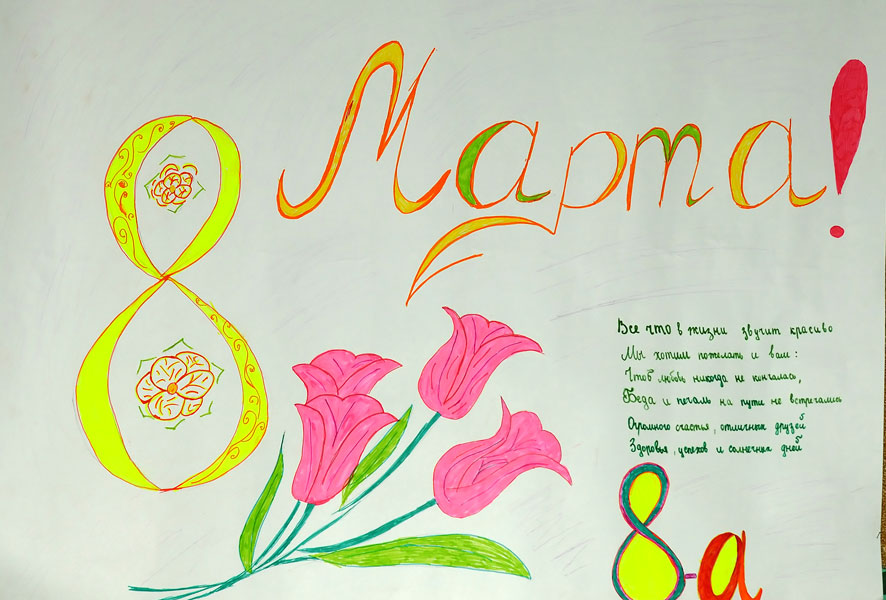 8 Марта!
Все что в жизни звучит красиво
Мы хотим пожелать и вам:
Чтоб любовь никогда не кончалась,
Беда и печаль на пути не встречались
Огромного счастья, отличных друзей
Здоровья, успехов и солнечных дней
8-а